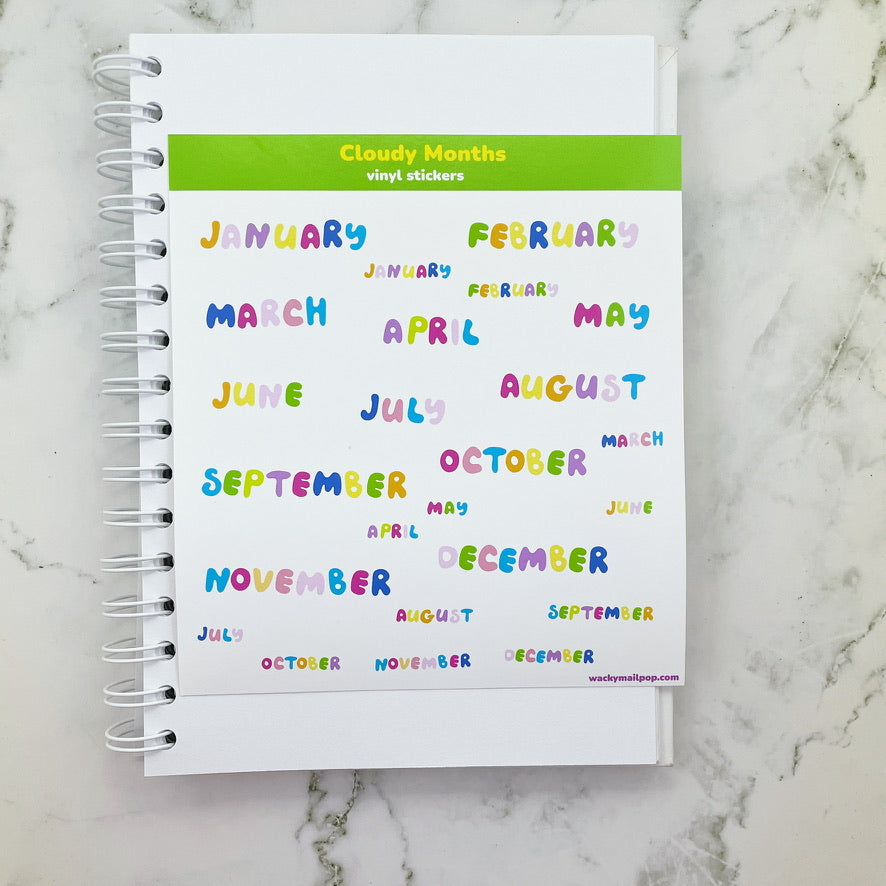 Cloudy Months
vinyl stickers
JANUARY FEBRUARY
JANUARY
FEBRUARY
MARCH APRIL MAY
JUNE JULY AUGUST
MARCH
SEPTEMBER OCTOBER
MAY JUNE
APRIL
NOVEMBER DECEMBER
AUGUST SEPTEMBER
JULY
OCTOBER NOVEMBER DECEMBER
wackymailpop.com